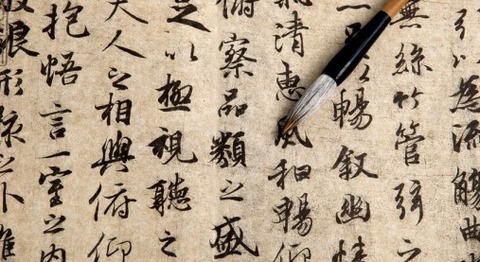 引以為流觴曲水
無絲竹管弦之
一暢叙幽情
氣清惠風和暢仰
俯察品類之盛
以極視聽之
夫人之相與俯仰
抱悟言一室之內
浪形骸之外雖